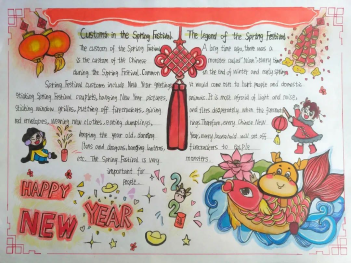 Customs in the Spring Festival
The custom of the Spring Festival
is the custom of the Chinese
during the Spring Festival. Common
Spring Festival customs include New Year greetings,
sticking Spring Festival couplets, hanging New Year pictures,
sticking window grilles, setting off firecrackers, giving
red envelopes, wearing new clothes, eating dumplings,
keeping the year old, dancing
lions and dragons, hanging lanterns,
etc. The Spring Festival is very
important for
people.
The legend of the Spring Festival
A long time ago, there was a
monster called "Nian". every time
in the end of winter and early spring
it would come out to hurt people and domestic
animals. It is most afraid of light and noise,
and flees
Therefore, every Chinese New
Year, every household will set off
firecrackers to
monsters.
HAPPY
NEW
YEAR